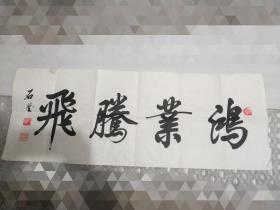 鴻業騰飛
石堂